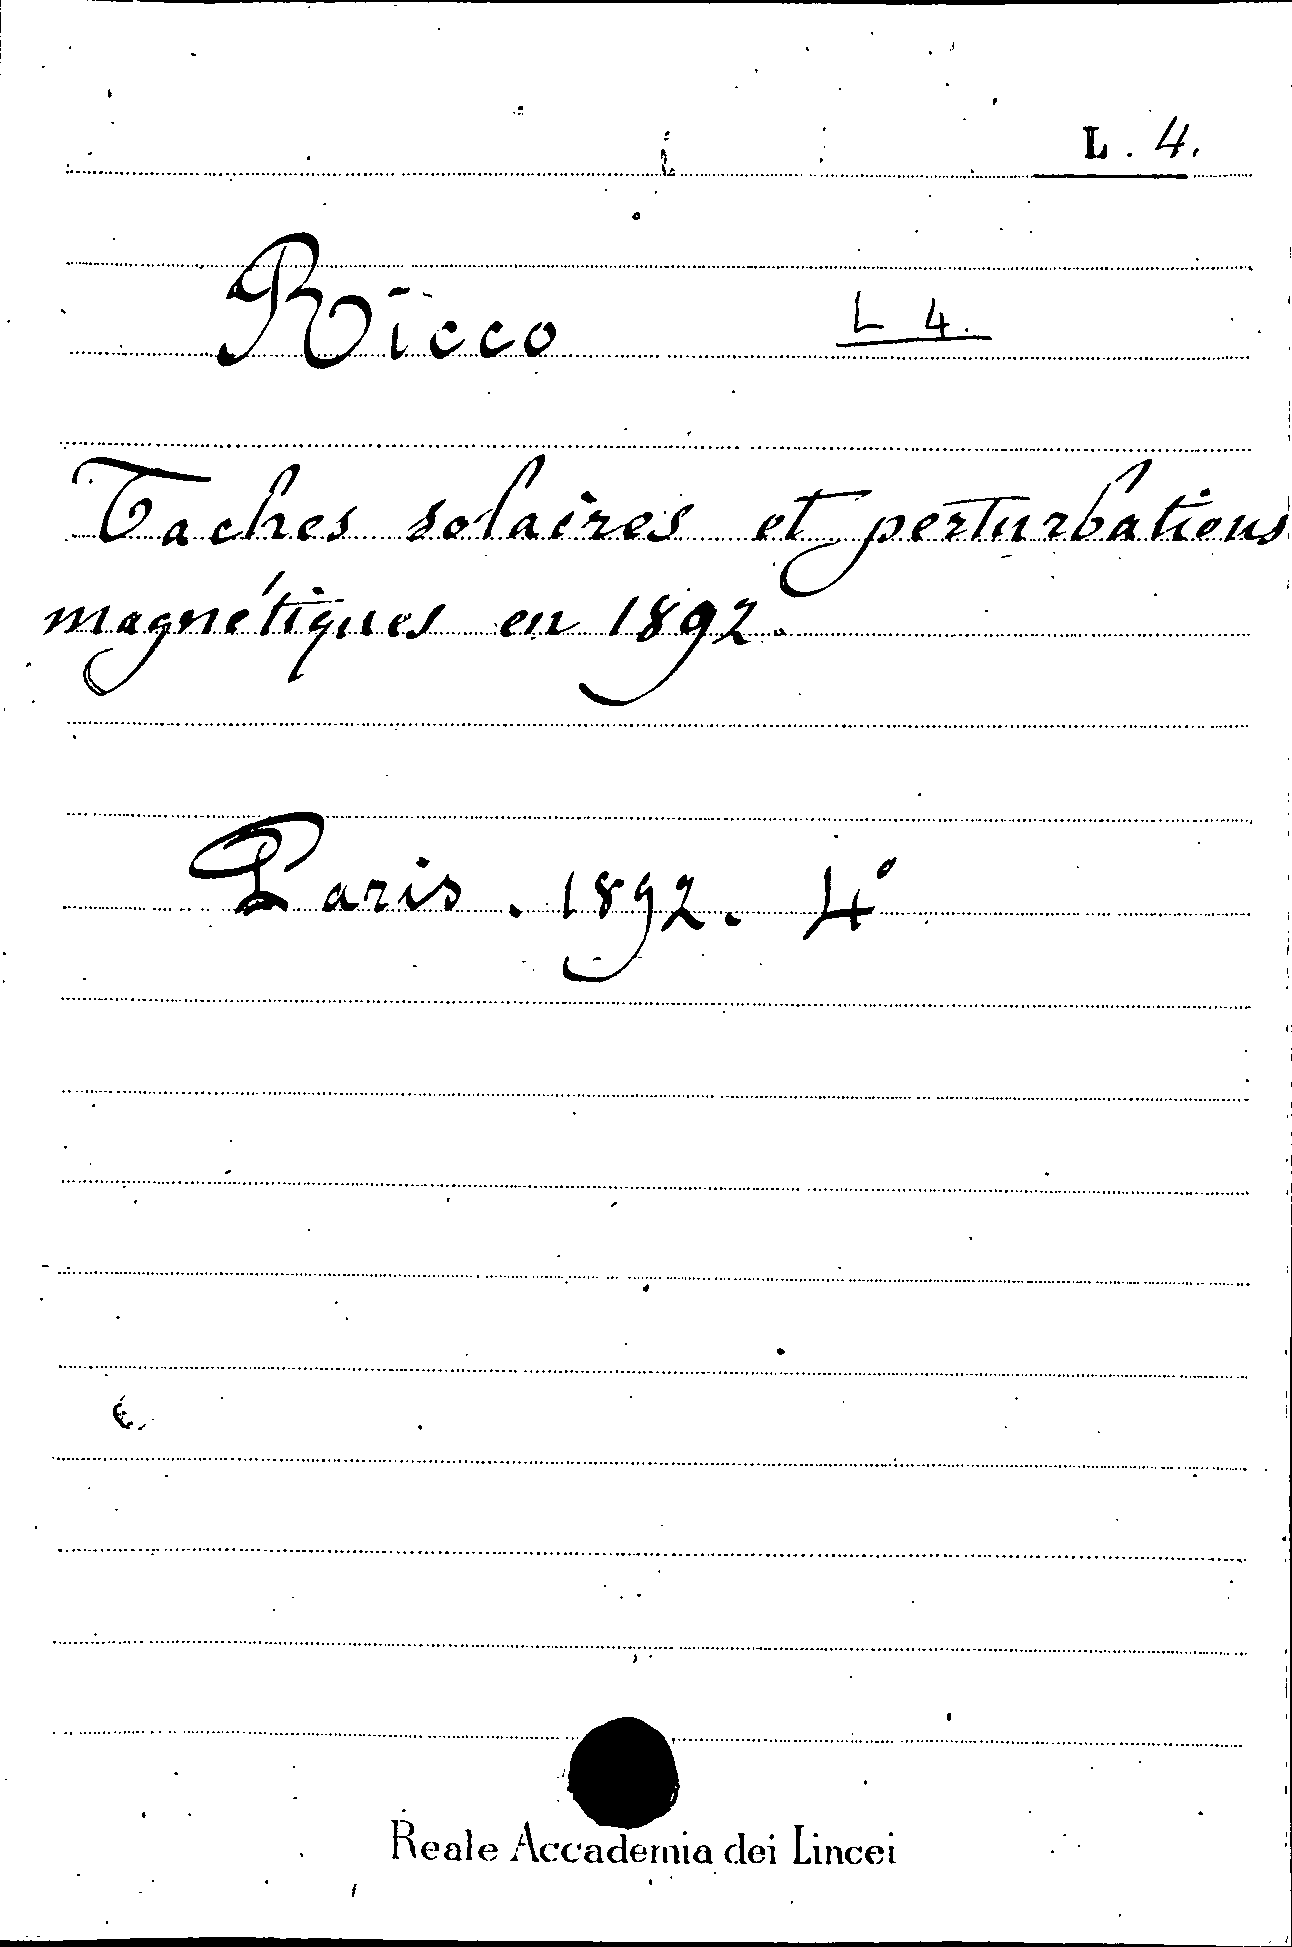 L. 4.
Ricco L 4.
Taches solaires et perturbations
magnétiques en 1892.
Paris. 1892. 4°
Reale Accademia dei Lincei